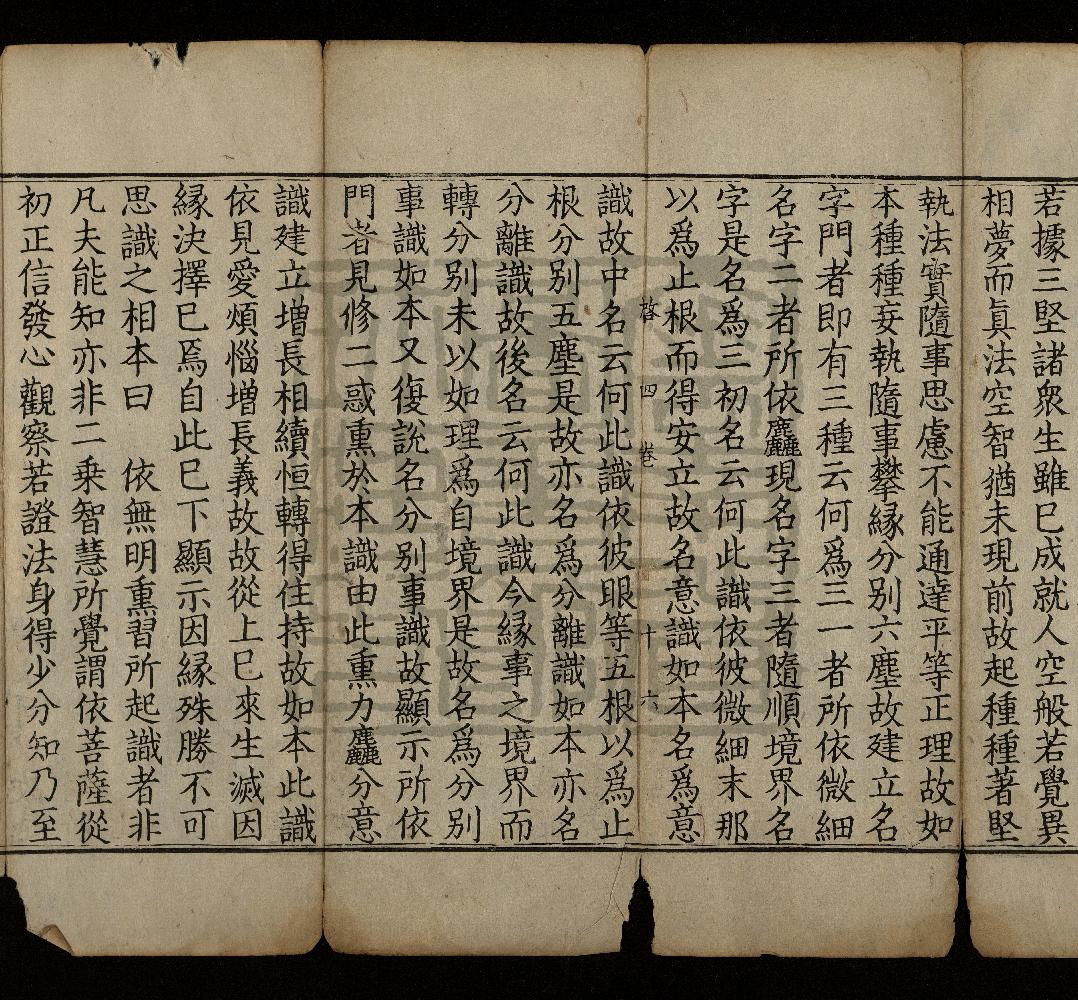 若據三堅諸衆生雖巳成就人空般若覺異
相夢而眞法空智猶未現前故起種種著堅
執法實隨事思慮不能通達平等正理故如
本種種妄執隨事攀緣分别六塵故建立名
字門者即有三種云何爲三一者所依微細
名字二者所依麤現名字三者隨順境界名
字是名爲三初名云何此識依彼微細末那
以爲止根而得安立故名意識如本名爲意
啓四卷 十六
識故中名云何此識依彼眼等五根以爲止
根分别五塵是故亦名爲分離識如本亦名
分離識故後名云何此識今緣事之境界而
轉分别未以如理爲自境界是故名爲分别
事識如本又復說名分别事識故顯示所依
門者見修二惑熏於本識由此熏力麤分意
識建立增長相續恒轉得住持故如本此識
依見愛煩惱增長義故故從上巳來生滅因
緣決擇巳焉自此巳下顯示因緣殊勝不可
思識之相本曰 依無明熏習所起識者非
凡夫能知亦非二乗智慧所覺謂依菩薩從
初正信發心觀察若證法身得少分知乃至